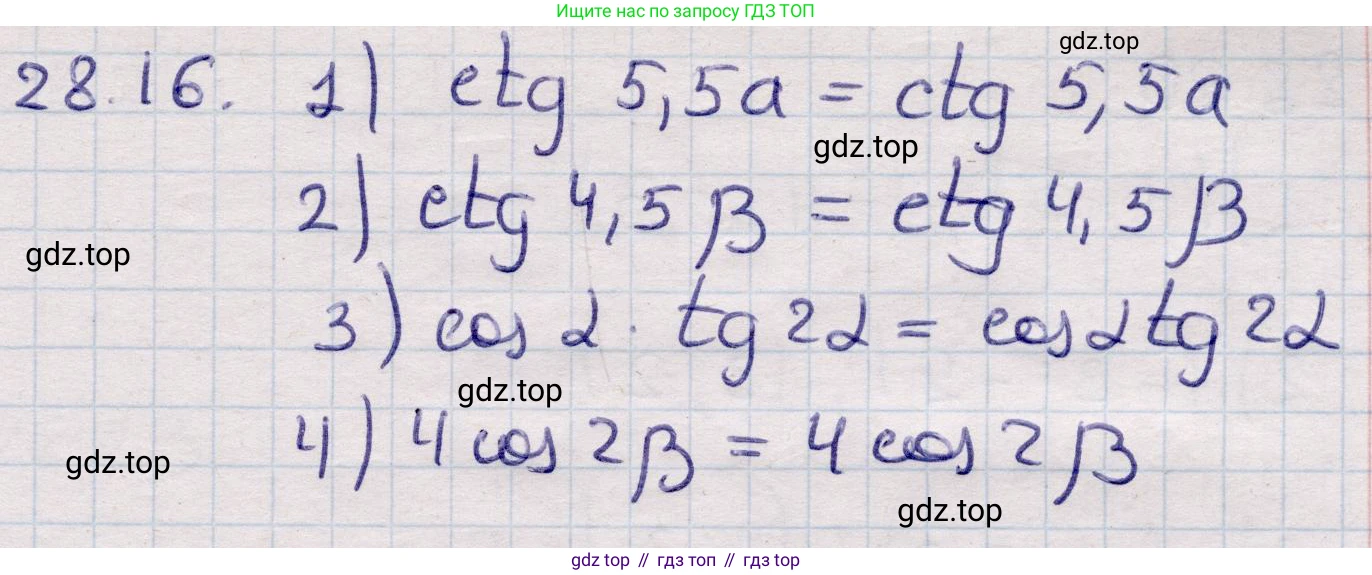 Ищите нас по запросу ГДЗ ТОП
gdz.top
28.16. 1) ctg 5,5α = ctg 5,5α
gdz.top
2) ctg 4,5β = ctg 4,5β
gdz.top
3) cos α · tg 2α = cos α tg 2α
gdz.top
4) 4 cos 2β = 4 cos 2β
gdz.top
gdz.top
gdz top // гдз топ // gdz.top